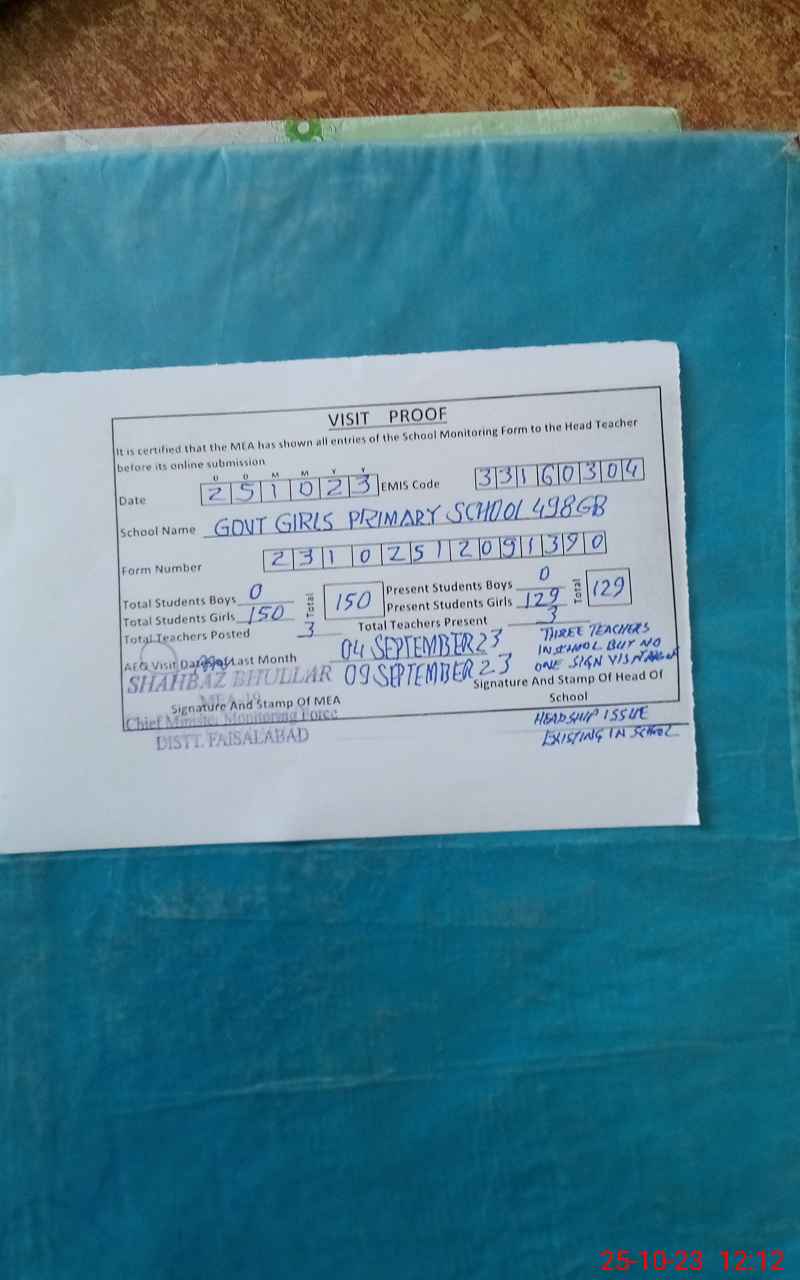 VISIT PROOF
It is certified that the MEA has shown all entries of the School Monitoring Form to the Head Teacher
before its online submission
D D M M Y Y
Date 251023 EMIS Code 33160304
School Name GOVT GIRLS PRIMARY SCHOOL 498GB
Form Number 23102512091390
Total Students Boys 0 Total 150 Present Students Boys 0 Total 129
Total Students Girls 150 Present Students Girls 129
Total Teachers Posted 3 Total Teachers Present 3
AEO Visit Date Last Month 04 SEPTEMBER 23
09 SEPTEMBER 23
THREE TEACHERS
IN SCHOOL BUT NO
ONE SIGN VISIT
SHAHBAZ BHULLAR
MEA-19
Signature And Stamp Of MEA
Chief Minister Monitoring Force
DISTT. FAISALABAD
Signature And Stamp Of Head Of
School
HEADSHIP ISSUE
EXISTING IN SCHOOL
25-10-23 12:12